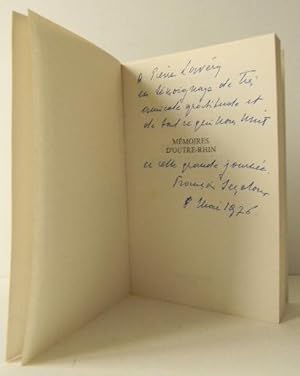 A Pierre
en témoignage de très
amicale gratitude et
de tout ce qui nous unit
MÉMOIRES
D'OUTRE-RHIN
en cette grande journée.
François
8 Mai 1976